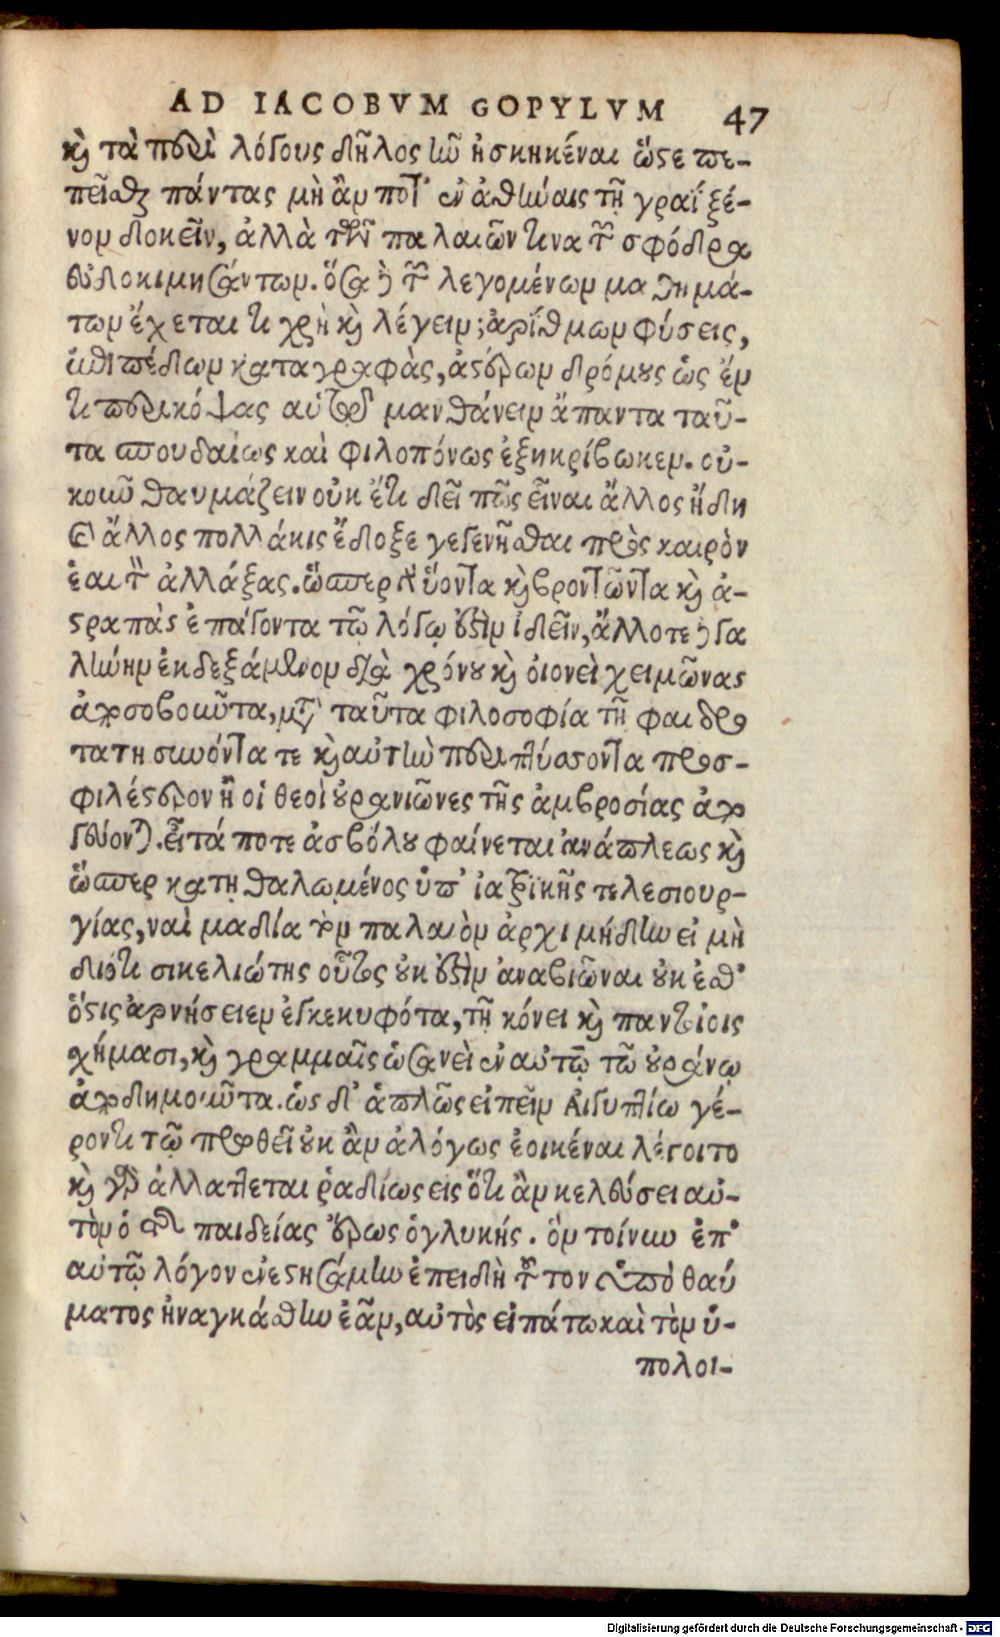 AD IACOBVM GOPYLVM 47
καὶ τὰ περὶ λόγους δῆλος ἦν ἠσκηκέναι ὥστε πε-
πεῖσθαι πάντας μὴ ἂν ποτ' ἐν ἀθήναις τῇ γραΐ ξέ-
νον δοκεῖν, ἀλλὰ τῶν παλαιῶν τινα τῶν σφόδρα
εὐδοκιμησάντων. ὅσα δὲ τῶν λεγομένων μαθημά-
των ἔχεται τι χρὴ καὶ λέγειν; ἀριθμων φύσεις,
ἐπιπέδων καταγραφὰς, ἀστέρων δρόμους ὡς ἔν
τι περικόψας αὐτοῦ μανθάνειν ἅπαντα ταῦ-
τα σπουδαίως καὶ φιλοπόνως ἐξηκρίβωκεν. οὐ-
κοιῶ θαυμάζειν οὐκ ἔτι δεῖ πῶς εἶναι ἄλλος ἤδη
καὶ ἄλλος πολλάκις ἔδοξε γεγενῆσθαι πρὸς καιρὸν
ἑαυτὸν ἀλλάξας. ὥσπερ ὕοντα καὶ βροντῶντα καὶ ἀ-
στραπὰς ἐπάγοντα τῷ λόγῳ ἔστιν ἰδεῖν, ἄλλοτε δὲ γα
λήνην ἐκδεξάμενον διὰ χρόνου καὶ οἱονεὶ χειμῶνας
ἀποσοβοῦντα, μετὰ ταῦτα φιλοσοφία τῇ φαιδρο
τατη συνόντα τε καὶ αὐτὴν περιπτύσσοντα προσ-
φιλέστερον ἢ οἱ θεοὶ οὐρανιῶνες τῆς ἀμβροσίας ἀπο
γεύονται. εἶτά ποτε ἀσβόλου φαίνεται ἀνάπλεως καὶ
ὥσπερ κατηθαλωμένος ὑπ' ἰατρικῆς τελεσιουρ-
γίας, ναὶ μαδία τὸν παλαιὸν ἀρχιμήδην εἰ μὴ
διότι σικελιώτης οὗτος οὐκ ἔστιν ἀναβιῶναι οὐκ ἔσθ'
ὅστις ἀρνήσειεν ἐγκεκυφότα, τῇ κόνει καὶ παντοίοις
χήμασι, καὶ γραμμαῖς ὡσανεὶ ἐν αὐτῷ τῷ οὐράνῳ
ἀποδημοῦντα. ὡς δ' ἁπλῶς εἰπεῖν Αἰγυπτίω γέ-
ροντι τῷ πρωτεῖ οὐκ ἂν ἀλόγως ἐοικέναι λέγοιτο
καὶ γὰρ ἀλλάττεται ῥαδίως εἰς ὅτι ἂν κελεύσει αὐ-
τὸν ὁ τῆς παιδείας ἔρως ὁ γλυκής. ὃν τοίνυν ἐπ'
αὐτῷ λόγον ἐνεστησάμην ἐπειδὴ τοῦτον ὑπὸ θαύ
ματος ἠναγκάσθην ἐᾶν, αὐτὸς εἰπάτω καὶ τὸν ὑ-
πολοι-
Digitalisierung gefördert durch die Deutsche Forschungsgemeinschaft - DFG